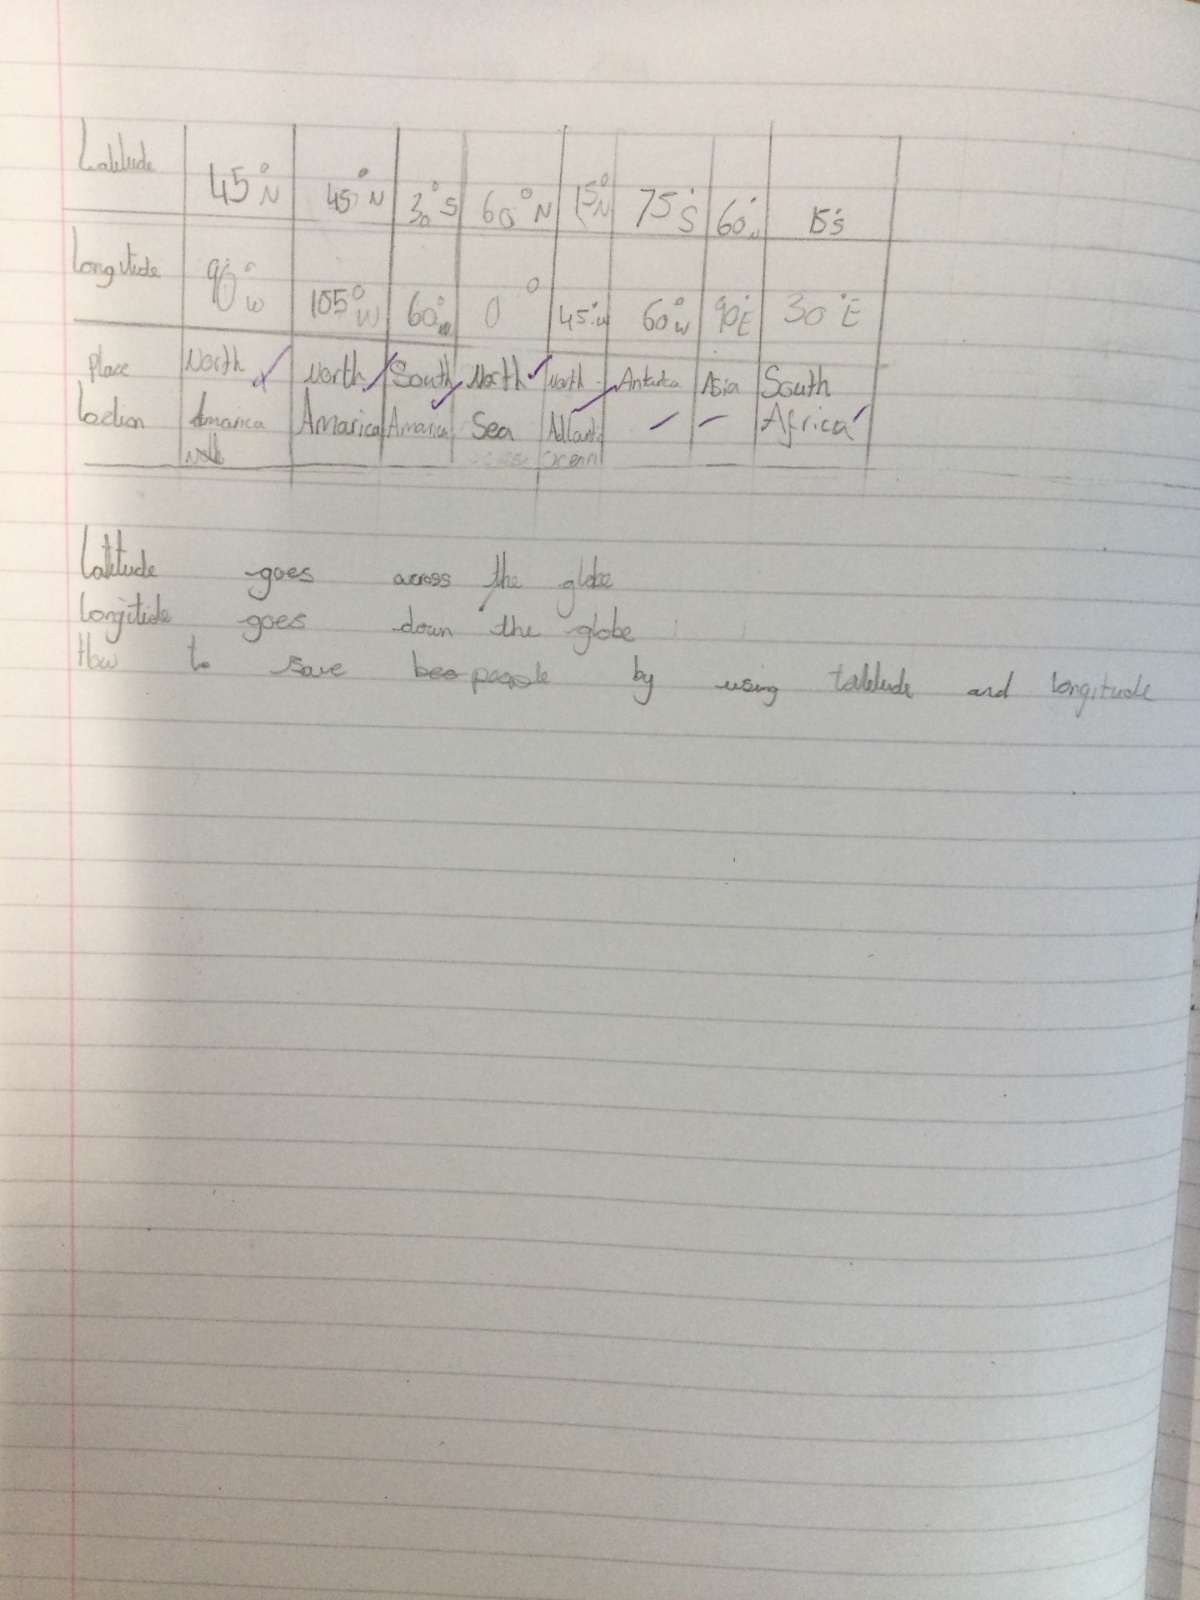 Latitude 45°N 45°N 30°S 60°N 15°N 75°S 60° 15°S
Longitude 90°W 105°W 60°W 0° 45°W 60°W 90°E 30°E
Place North North South North North Antartca Asia South
Location Amarica Amarica Amarica Sea Atlantic Africa
Ocean
Latitude goes across the globe
Longitide goes down the globe
How to save people by using latitude and longitude